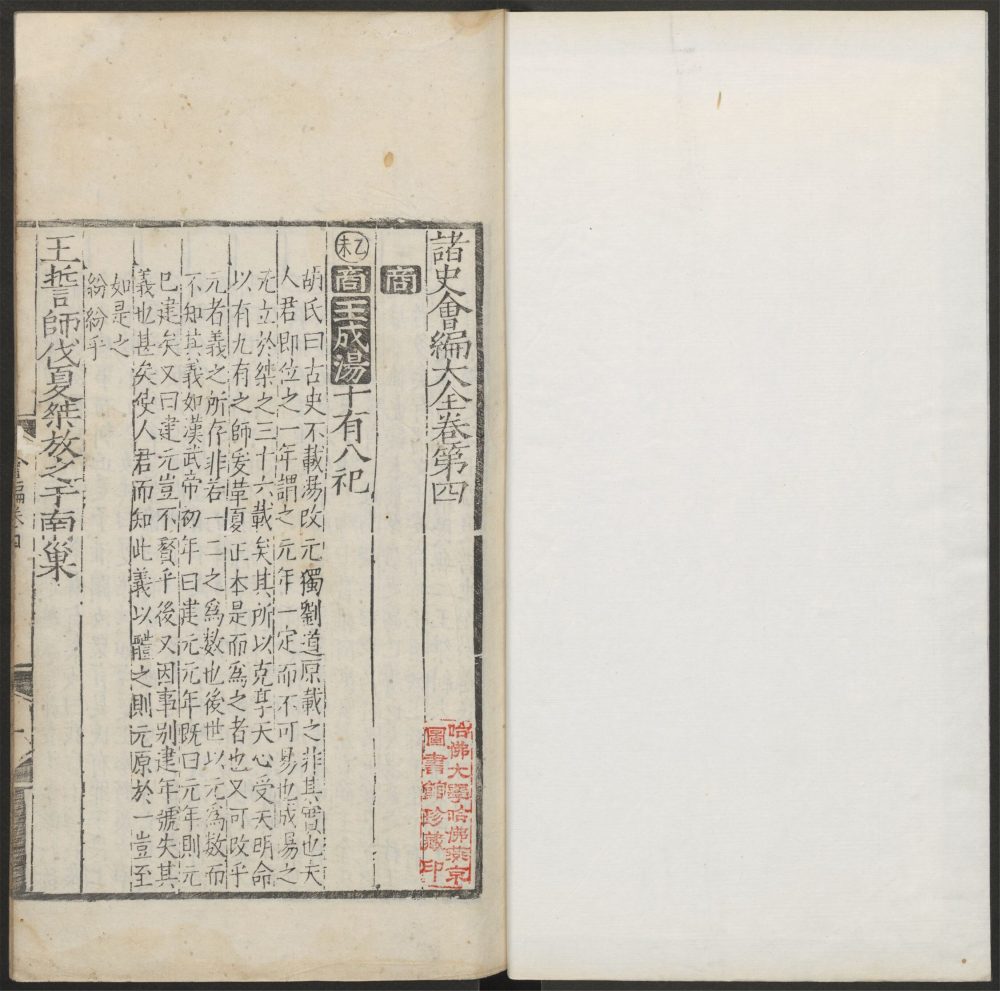 諸史會編大全卷第四
商
乙未
商王成湯十有八祀
胡氏曰古史不載湯改元獨劉道原載之非其實也夫
人君即位之一年謂之元年一定而不可易也成湯之
元立於桀之三十六載矣其所以克享天心受天明命
以有九有之師爰革夏正本是而爲之者也又可改乎
元者義之所存非若一二之爲數也後世以元爲数而
不知其義如漢武帝初年曰建元元年既曰元年則元
已建矣又曰建元豈不贅乎後又因事别建年號失其
義也甚矣使人君而知此義以體之則元原於一豈至
如是之
紛紛乎
王誓師伐夏桀放之于南巢
會編卷四
哈佛大學哈佛燕京
圖書館珍藏印